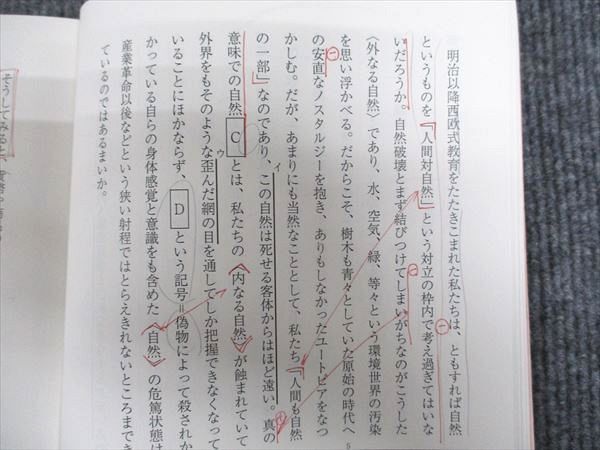 明治以降西欧式教育をたたきこまれた私たちは、ともすれば自然
というものを「人間対自然」という対立の枠内で考え過ぎてはいな
いだろうか。自然破壊とまず結びつけてしまいがちなのがこうした
〈外なる自然〉であり、水、空気、緑、等々という環境世界の汚染
を思い浮かべる。だからこそ、樹木も青々としていた原始の時代へ
の安直なノスタルジーを抱き、ありもしなかったユートピアをなつ
かしむ。だが、あまりにも当然なこととして、私たち「人間も自然
の一部」なのであり、この自然は死せる客体からはほど遠い。真の
意味での自然 C とは、私たちの〈内なる自然〉が蝕まれていて
外界をもそのような歪んだ網の目を通してしか把握できなくなって
いることにほかならず、 D という記号＝偽物によって殺されか
かっている自らの身体感覚と意識をも含めた〈自然〉の危篤状態は
産業革命以後などという狭い射程ではとらえきれないところまでき
ているのではあるまいか。
イ
ウ
5
そうしてみると、